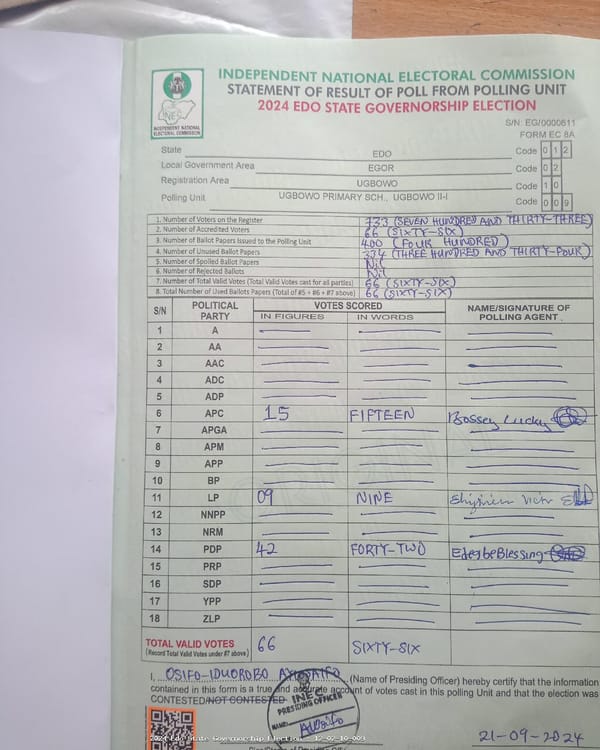 INDEPENDENT NATIONAL ELECTORAL COMMISSION
STATEMENT OF RESULT OF POLL FROM POLLING UNIT
2024 EDO STATE GOVERNORSHIP ELECTION
INEC
INDEPENDENT NATIONAL
ELECTORAL COMMISSION
S/N EG/0000611
FORM EC 8A
State EDO Code 0 1 2
Local Government Area EGOR Code 0 2
Registration Area UGBOWO Code 1 0
Polling Unit UGBOWO PRIMARY SCH., UGBOWO II-I Code 0 0 9
1. Number of Voters on the Register 733 (SEVEN HUNDRED AND THIRTY-THREE)
2. Number of Accredited Voters 66 (SIXTY-SIX)
3. Number of Ballot Papers Issued to the Polling Unit 400 (FOUR HUNDRED)
4. Number of Unused Ballot Papers 334 (THREE HUNDRED AND THIRTY-FOUR)
5. Number of Spoiled Ballot Papers Nil
6. Number of Rejected Ballots Nil
7. Number of Total Valid Votes (Total Valid Votes cast for all parties) 66 (SIXTY-SIX)
8. Total Number of Used Ballots Papers (Total of #5 + #6 + #7 above) 66 (SIXTY-SIX)
S/N POLITICAL PARTY VOTES SCORED NAME/SIGNATURE OF POLLING AGENT
IN FIGURES IN WORDS
1 A
2 AA
3 AAC
4 ADC
5 ADP
6 APC 15 FIFTEEN Bossey Lucky
7 APGA
8 APM
9 APP
10 BP
11 LP 09 NINE
12 NNPP
13 NRM
14 PDP 42 FORTY-TWO Edegbe Blessing
15 PRP
16 SDP
17 YPP
18 ZLP
TOTAL VALID VOTES 66 SIXTY-SIX
(Record Total Valid Votes under #7 above)
I, OSIFO-IDUOROBO (Name of Presiding Officer) hereby certify that the information
contained in this form is a true and accurate account of votes cast in this polling Unit and that the election was
CONTESTED/NOT CONTESTED
INEC
PRESIDING OFFICER
NAME:
21-09-2024
2024 Edo State Governorship Election - 12-02-10-009